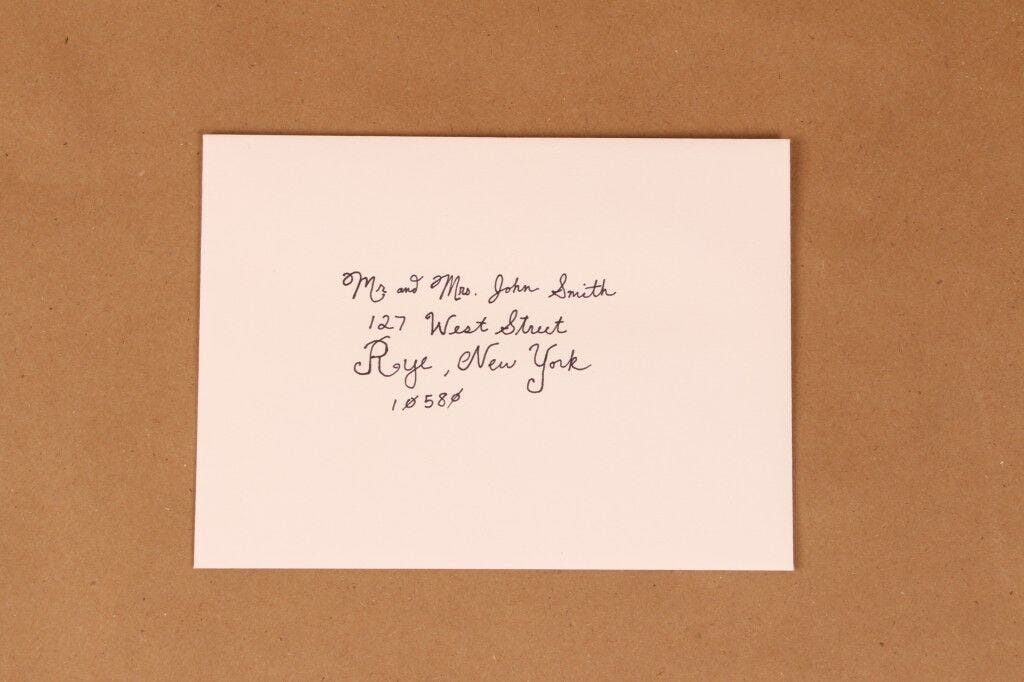 Mr. and Mrs. John Smith
127 West Street
Rye, New York
10580